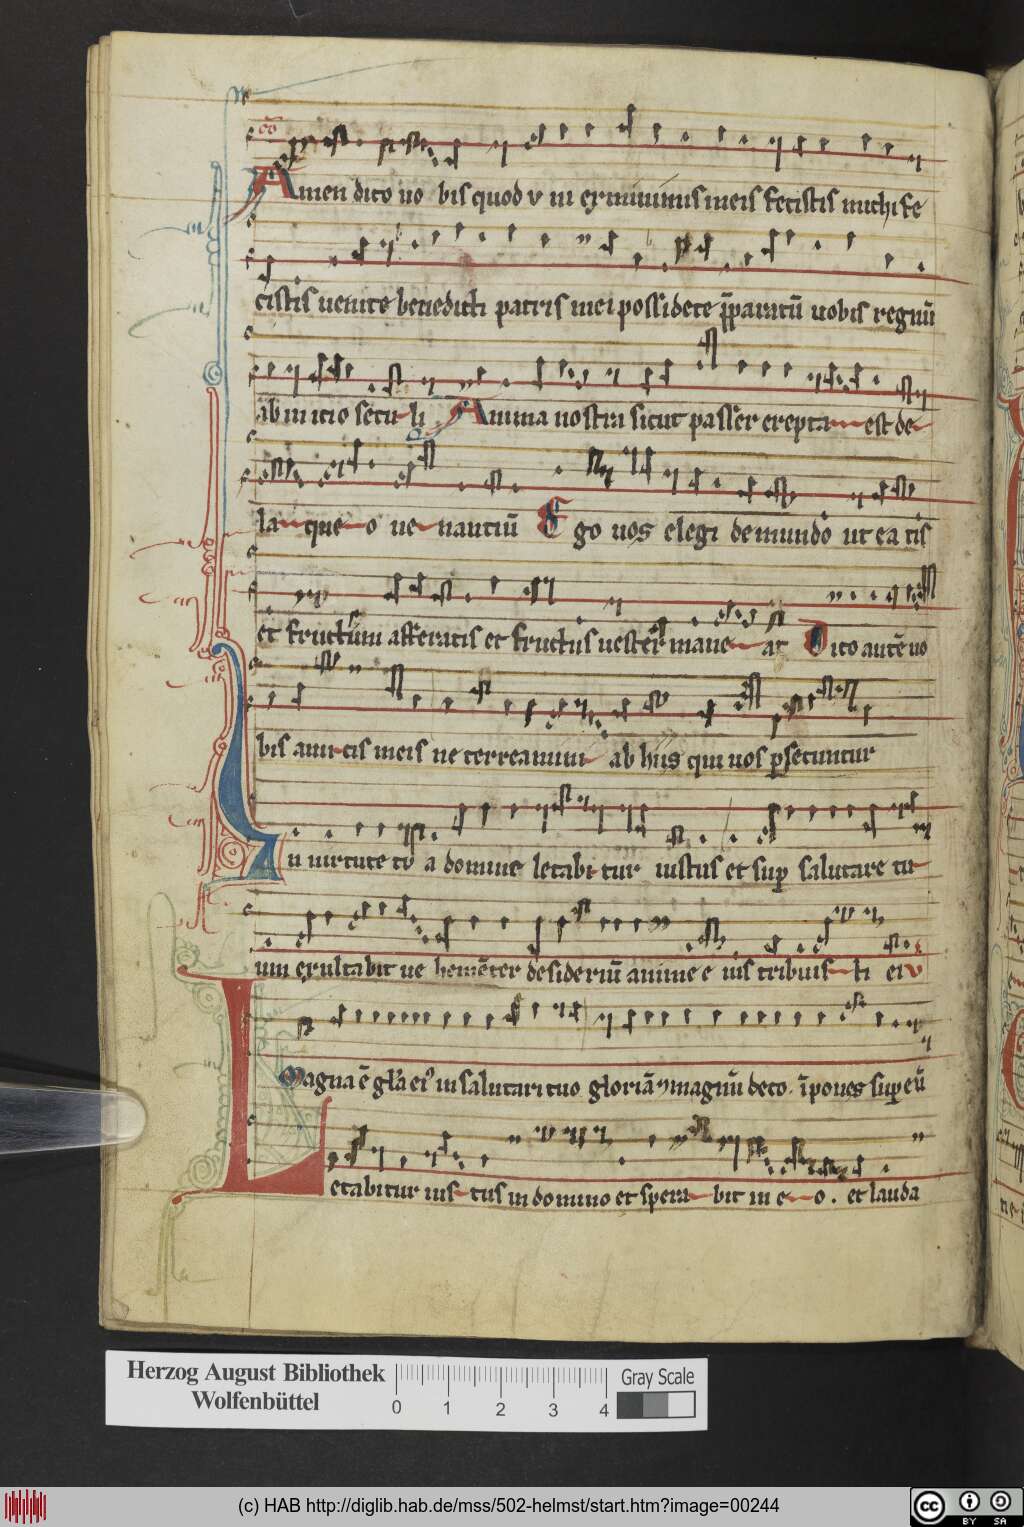 cō
Amen dico uo bis quod v ni ex minimis meis fecistis michi fe
cistis uenite benedicti patris mei possidete p̄paratū uobis regnū
ab in icio secu li Anima nostra sicut passer erepta est de
la que o ue nanciū Ego uos elegi de mundo ut ea tis
et fructum afferatis et fructus uester mane at Dico autē uo
bis ami cis meis ne terreamini ab hiis qui uos psecuntur
In uirtute tu a domine letabi tur iustus et sup salutare tu
um exultabit ue hemēter desideriū anime e ius tribuis ti ei v
Magna ē gl'a ei' in salutari tuo gloriā ⁊ magnū deco. īpones sup eū
Letabitur ius tus in domino et spera bit in e o. et lauda
Herzog August Bibliothek
Wolfenbüttel
0 1 2 3 4
Gray Scale
(c) HAB http://diglib.hab.de/mss/502-helmst/start.htm?image=00244
cc BY SA